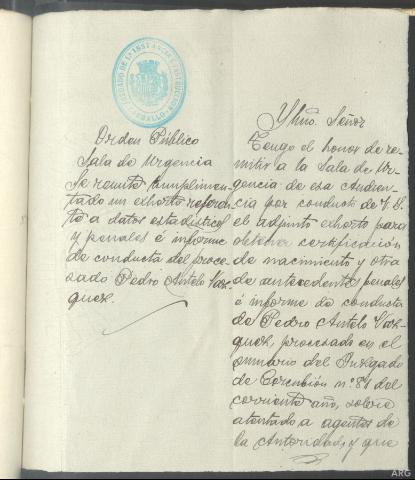 JUZGADO DE 1ª INSTANCIA E INSTRUCCION
CARBALLO
Orden Público
Sala de Urgencia
Se remite cumplimen-
tado un exhorto referen-
te a datos estadisticos
y penales é informe
de conducta del proce-
sado Pedro Antelo Vaz-
quez.
Yltmo. Señor
Tengo el honor de re-
mitir a la Sala de Ur-
gencia de esa Audien-
cia por conducto de V. S.
el adjunto exhorto para
obtener certificación
de nacimiento y otra
de antecedentes penales
é informe de conducta
de Pedro Antelo Vaz-
quez, procesado en el
sumario del Juzgado
de Corcubión nº 81 del
corriente año, sobre
atentado a agentes de
la Autoridad, y que
ARG